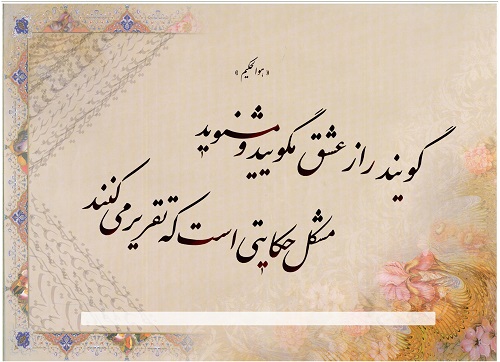 « هوالحکیم »
گویند راز عشق مگویید و مشنوید
مشکل حکایتی است که تقریر می کنند